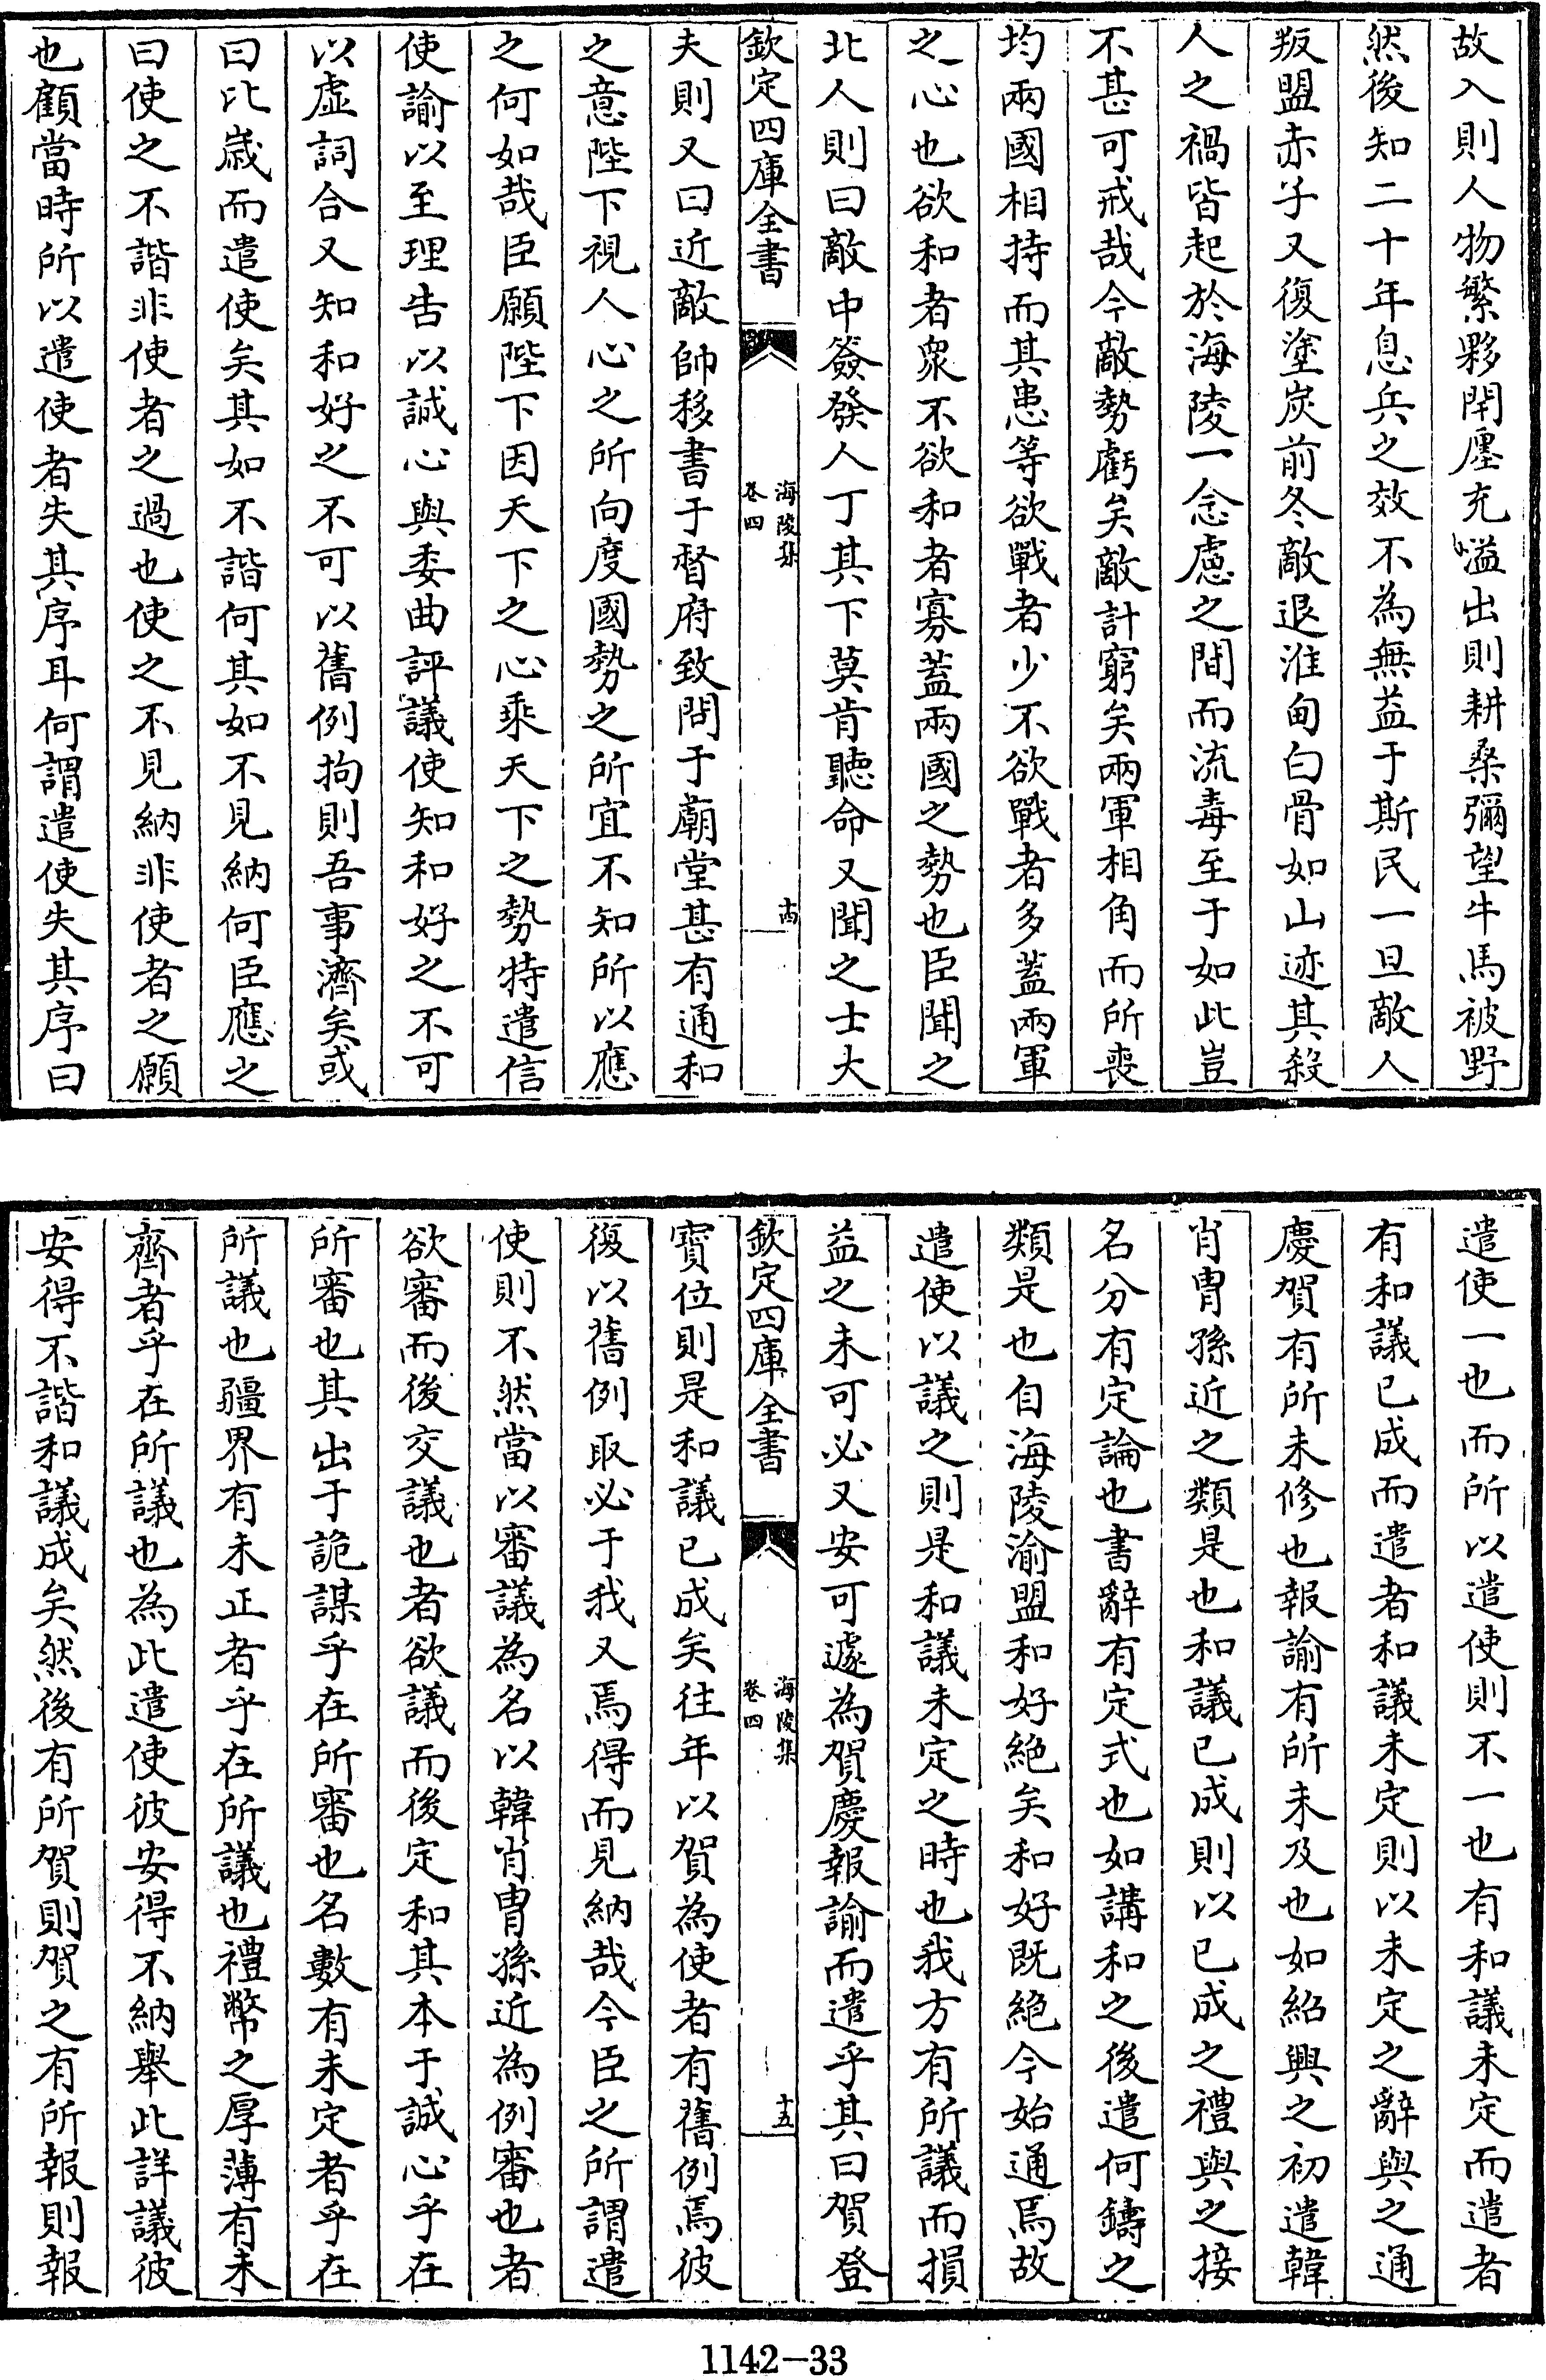 故入則人物繁夥閈廛充嗌出則耕桑彌望牛馬被野
然後知二十年息兵之效不為無益于斯民一旦敵人
叛盟赤子又復塗炭前冬敵退淮甸白骨如山迹其殺
人之禍皆起於海陵一念慮之間而流毒至于如此豈
不甚可戒哉今敵勢虧矣敵計窮矣兩軍相角而所喪
均兩國相持而其患等欲戰者少不欲戰者多蓋兩軍
之心也欲和者衆不欲和者寡蓋兩國之勢也臣聞之
北人則曰敵中簽發人丁其下莫肯聽命又聞之士大
欽定四庫全書
海陵集
卷四
十四
夫則又曰近敵帥移書于督府致問于廟堂甚有通和
之意陛下視人心之所向度國勢之所宜不知所以應
之何如哉臣願陛下因天下之心乘天下之勢特遣信
使諭以至理告以誠心與委曲評議使知和好之不可
以虛詞合又知和好之不可以舊例拘則吾事濟矣或
曰比歲而遣使矣其如不諧何其如不見納何臣應之
曰使之不諧非使者之過也使之不見納非使者之願
也顧當時所以遣使者失其序耳何謂遣使失其序曰
遣使一也而所以遣使則不一也有和議未定而遣者
有和議已成而遣者和議未定則以未定之辭與之通
慶賀有所未修也報諭有所未及也如紹興之初遣韓
肖胄孫近之類是也和議已成則以已成之禮與之接
名分有定論也書辭有定式也如講和之後遣何鑄之
類是也自海陵渝盟和好絕矣和好既絕今始通焉故
遣使以議之則是和議未定之時也我方有所議而損
益之未可必又安可遽為賀慶報諭而遣乎其曰賀登
欽定四庫全書
海陵集
卷四
十五
寶位則是和議已成矣往年以賀為使者有舊例焉彼
復以舊例取必于我又焉得而見納哉今臣之所謂遣
使則不然當以審議為名以韓肖胄孫近為例審也者
欲審而後交議也者欲議而後定和其本于誠心乎在
所審也其出于詭謀乎在所審也名數有未定者乎在
所議也疆界有未正者乎在所議也禮幣之厚薄有未
齊者乎在所議也為此遣使彼安得不納舉此詳議彼
安得不諧和議成矣然後有所賀則賀之有所報則報
1142-33